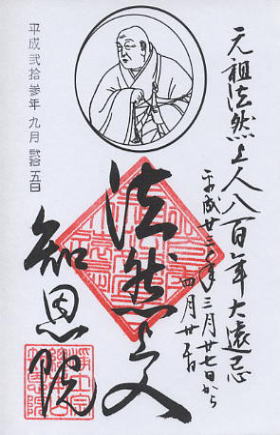 元祖法然上人八百年大遠忌
平成廿三年三月廿七日から
四月廿五日
法然上人
知恩院
平成弐拾参年 九月 弐拾五日